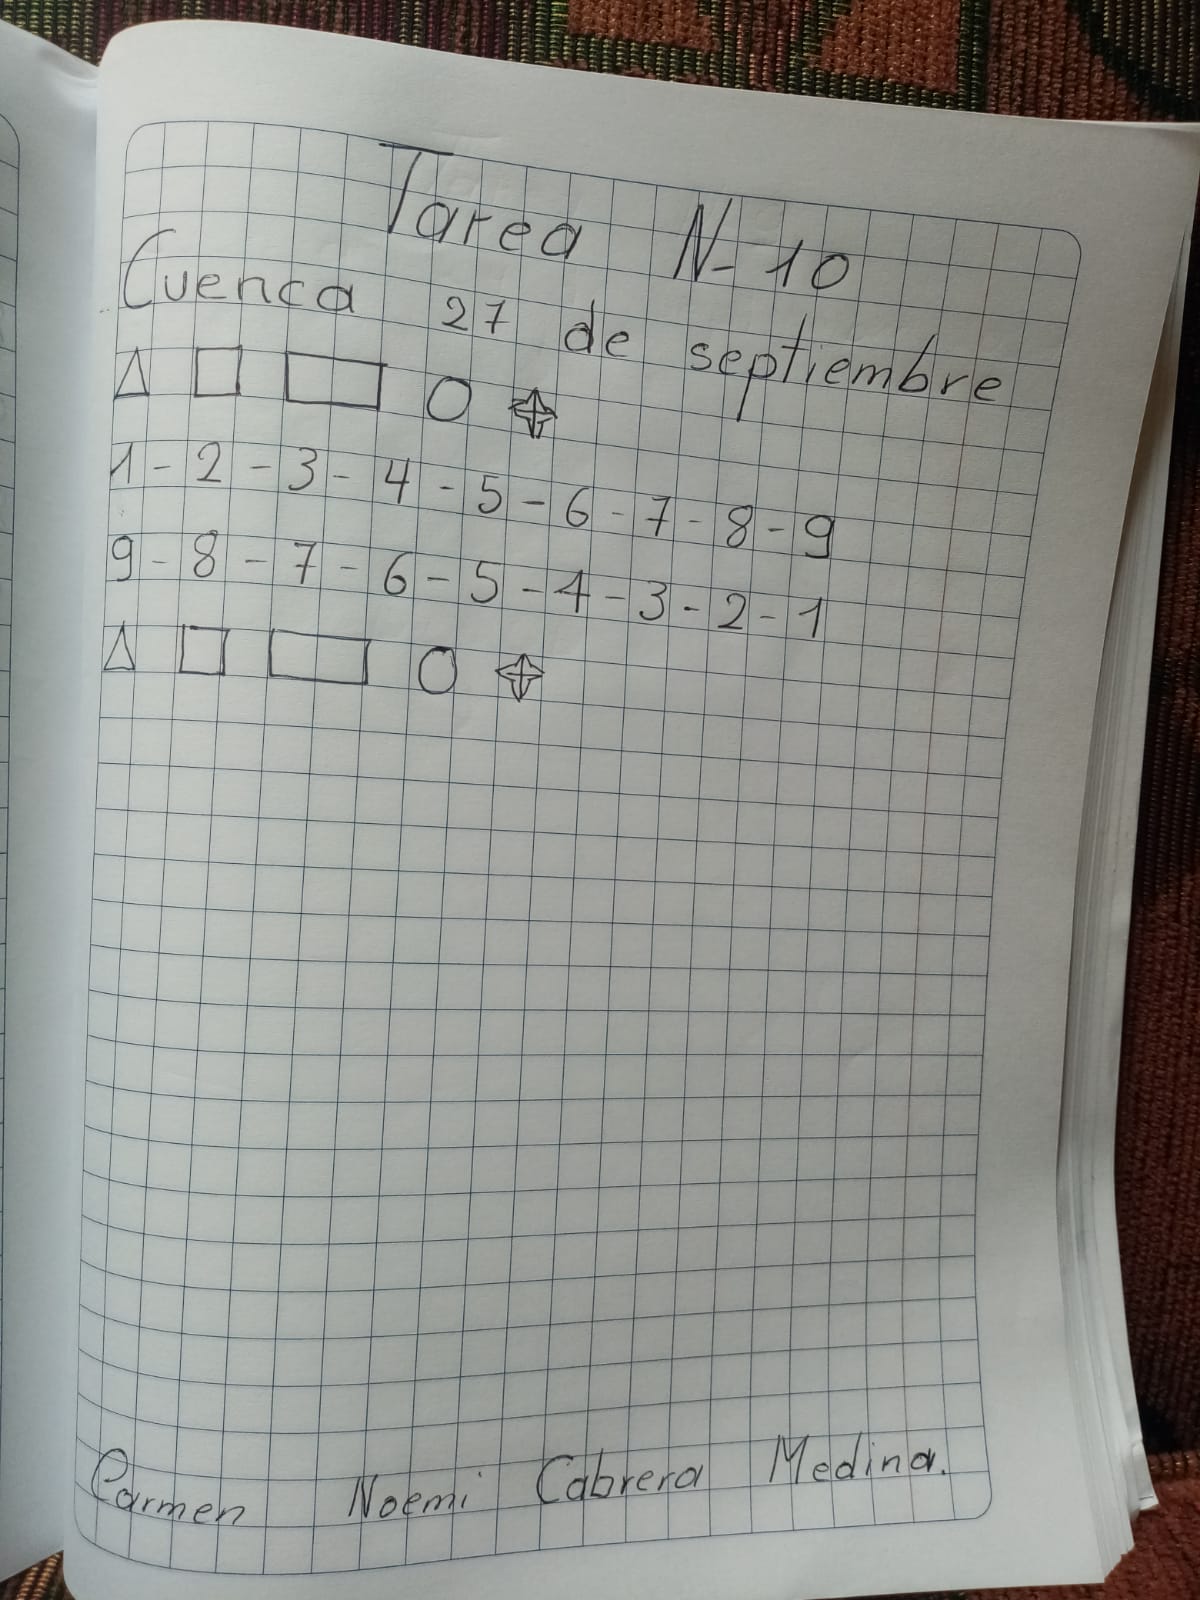 Tarea N- 10
Cuenca 27 de septiembre
1 - 2 - 3 - 4 - 5 - 6 - 7 - 8 - 9
9 - 8 - 7 - 6 - 5 - 4 - 3 - 2 - 1
Carmen Noemi Cabrera Medina.